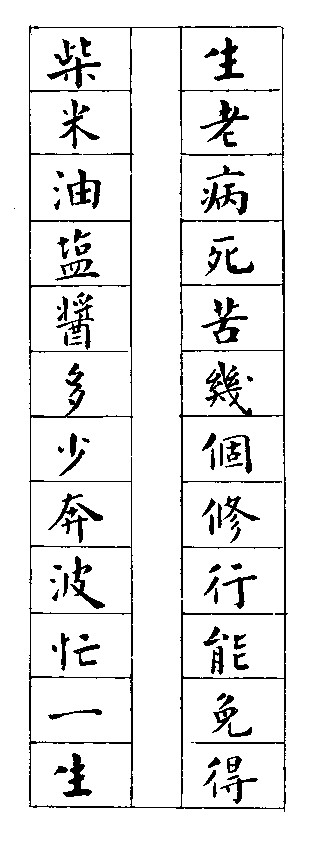 生老病死苦幾個修行能免得
柴米油塩醬多少奔波忙一生